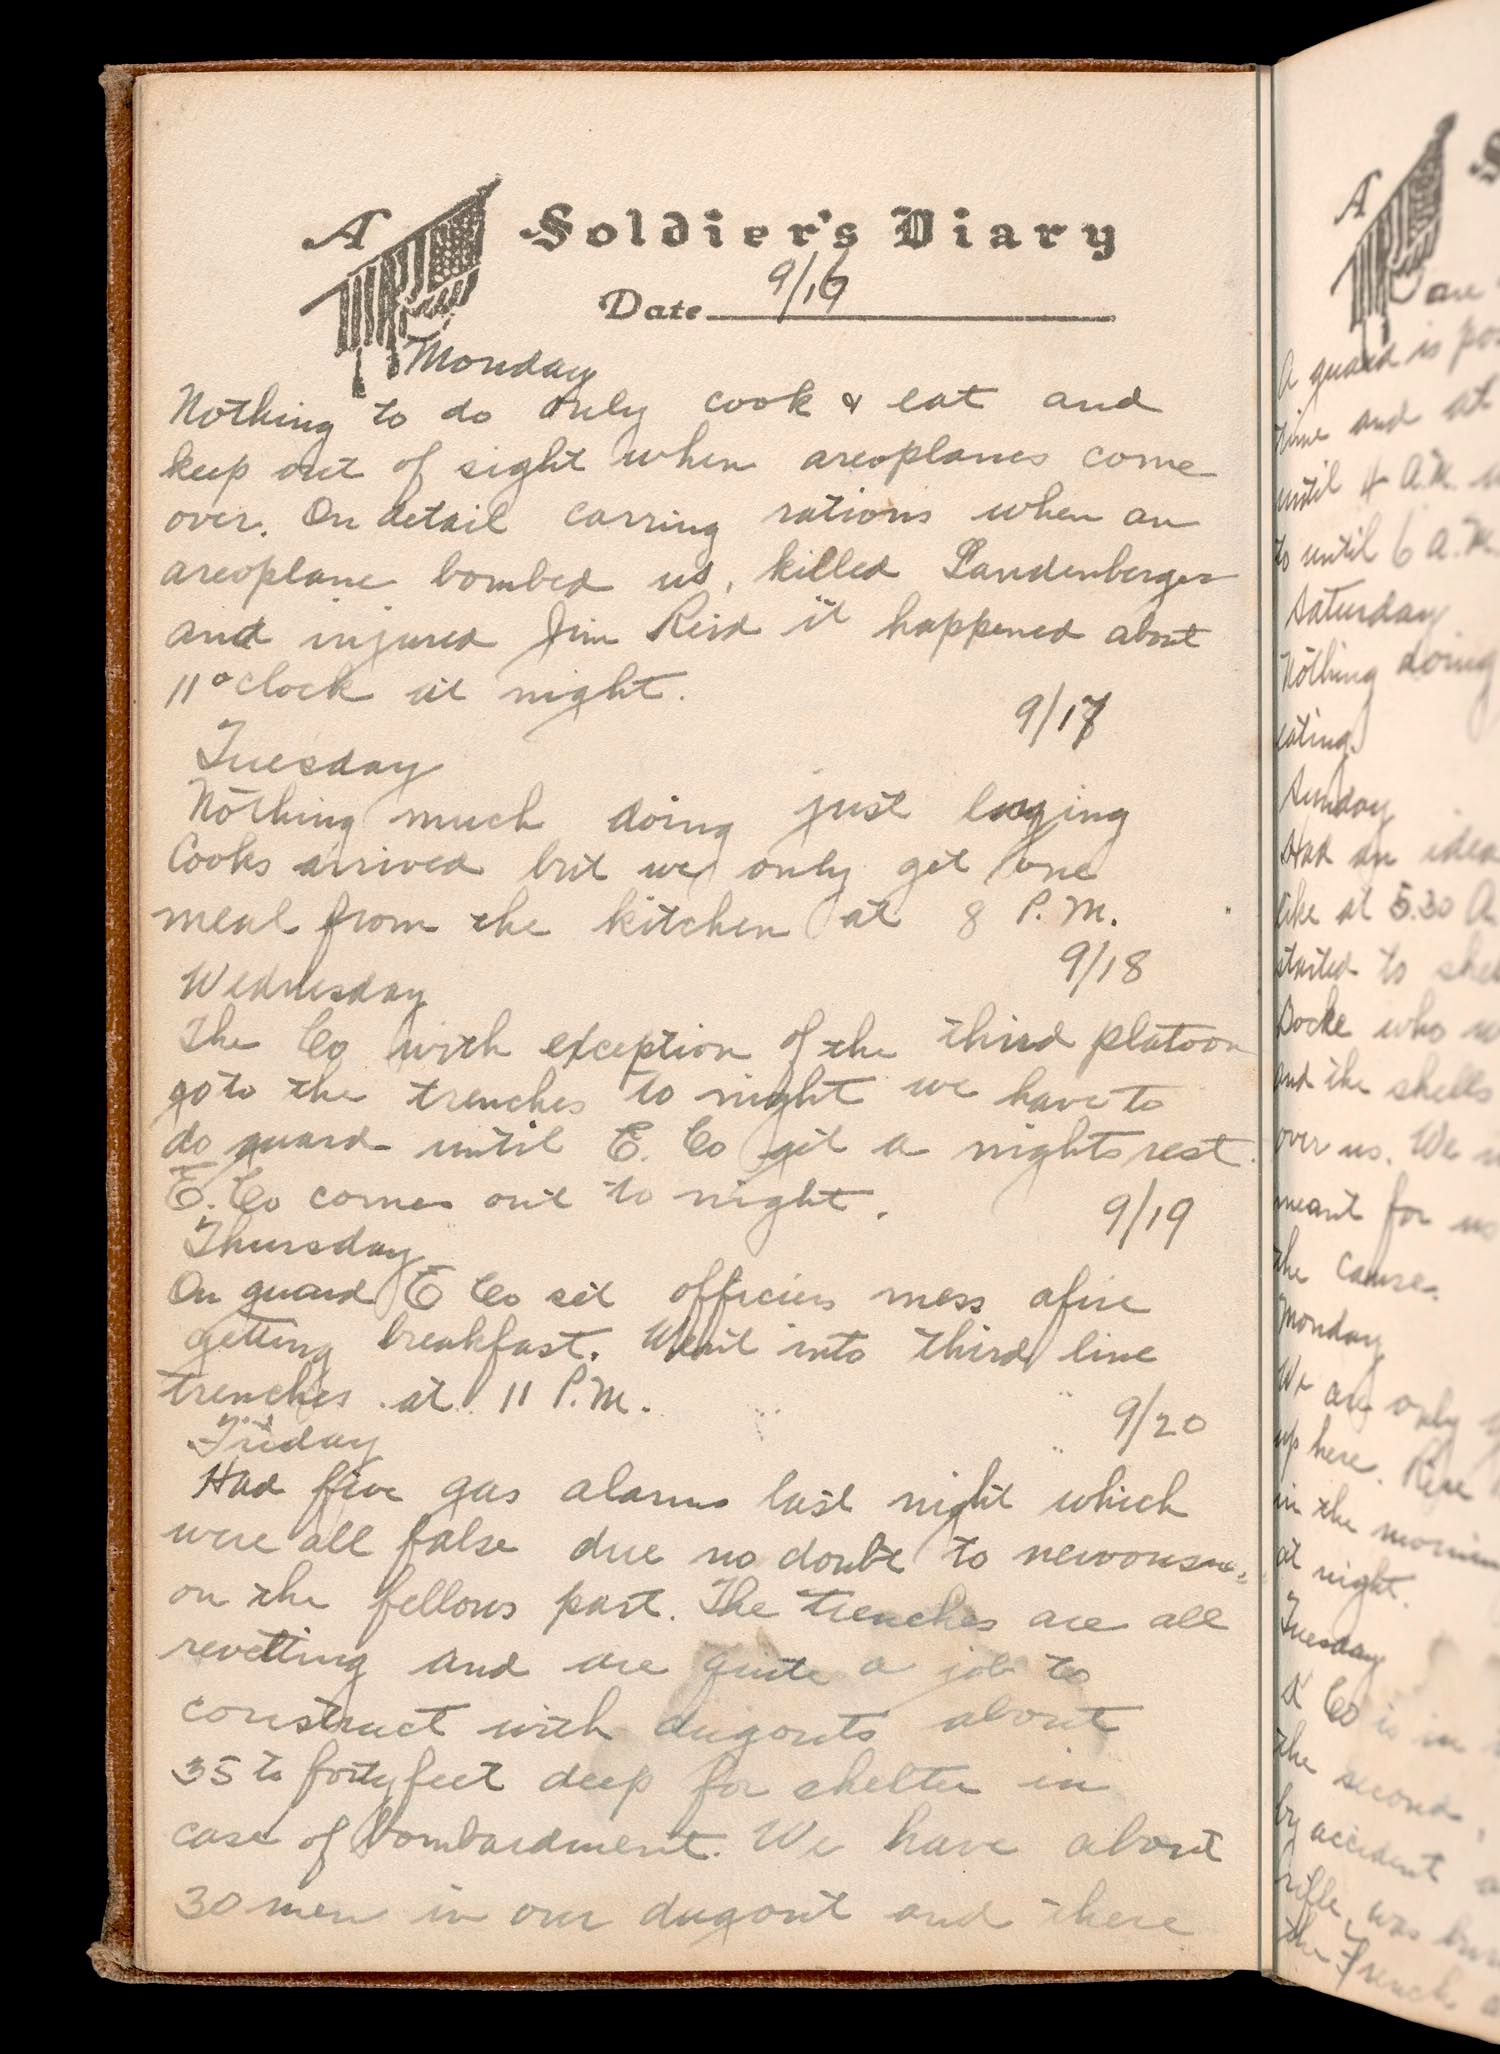 A Soldier's Diary
Date 9/16
Monday
Nothing to do only cook & eat and
keep out of sight when areoplanes come
over. On detail carring rations when an
areoplane bombed us, killed Landenberger
and injured Jim Reid it happened about
11 o'clock at night.
9/17
Tuesday
Nothing much doing just laying
Cooks arrived but we only get one
meal from the kitchen at 8 P.M.
9/18
Wednesday
The Co with exception of the third platoon
go to the trenches to night we have to
do guard until E. Co get a nights rest.
E. Co comes out to night.
9/19
Thursday
On guard E Co set officers mess afire
getting breakfast. Went into third line
trenches at 11 P.M.
9/20
Friday
Had five gas alarms last night which
were all false due no doubt to
on the fellows part. The trenches are all
revetting and are quite a job to
construct with dugouts about
35 to forty feet deep for shelter in
case of bombardment. We have about
30 men in our dugout and there
A
are
A guard is
time and at
until 4 A.M.
to until 6 A.M.
Saturday
Nothing doing
eating.
Sunday
Had an idea
at 5.30 A.
started to
Bocke who
and the shells
over us. We
meant for us
the cause.
Monday
We are only
up here. Rise
in the
at night.
Tuesday
Co is in
the second,
by accident
rifle, was
the French